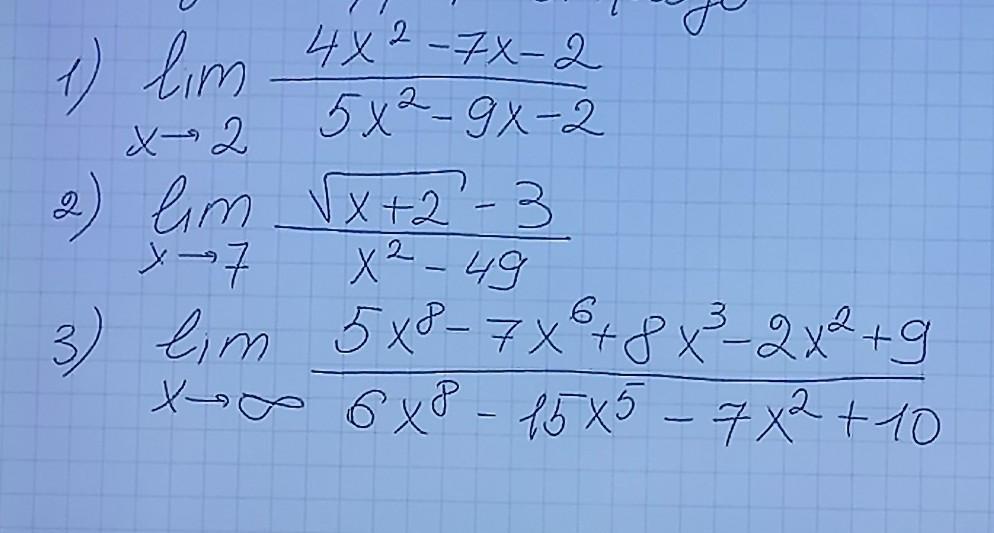 1) lim 4x² - 7x - 2
x→2 5x² - 9x - 2
2) lim √(x+2) - 3
x→7 x² - 49
3) lim 5x⁸ - 7x⁶ + 8x³ - 2x² + 9
x→∞ 6x⁸ - 15x⁵ - 7x² + 10